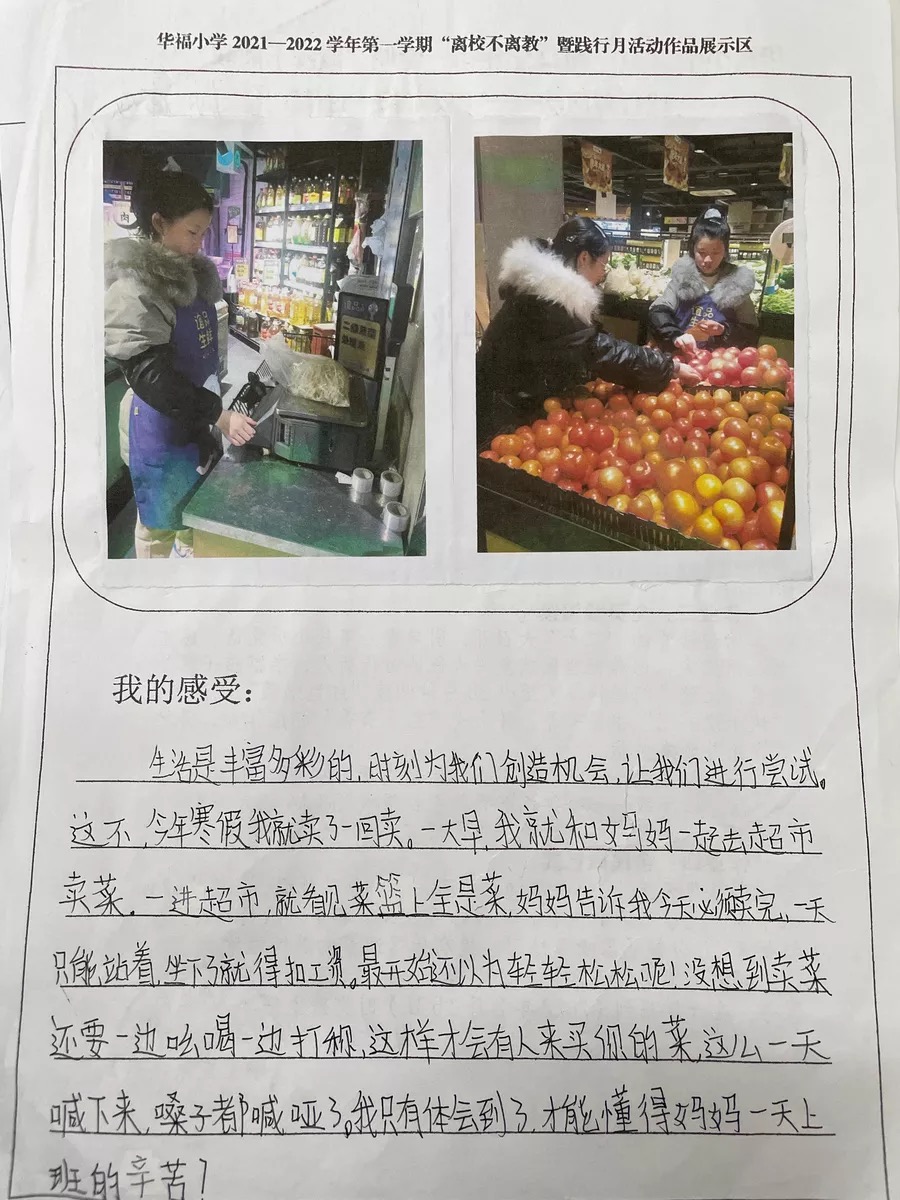 华福小学 2021—2022 学年第一学期“离校不离教”暨践行月活动作品展示区
肉
谊品
生鲜
谊品
生鲜
我的感受：
生活是丰富多彩的，时刻为我们创造机会，让我们进行尝试。
这不，今年寒假我就卖了一回卖。一大早，我就和妈妈一起去超市
卖菜。一进超市，就看见菜篮上全是菜，妈妈告诉我今天必须卖完，一天
只能站着，坐下了就得扣工资。最开始还以为轻轻松松呢！没想到卖菜
还要一边吆喝一边打称，这样才会有人来买你的菜，这么一天
喊下来，嗓子都喊哑了。我只有体会到了，才能懂得妈妈一天上
班的辛苦！